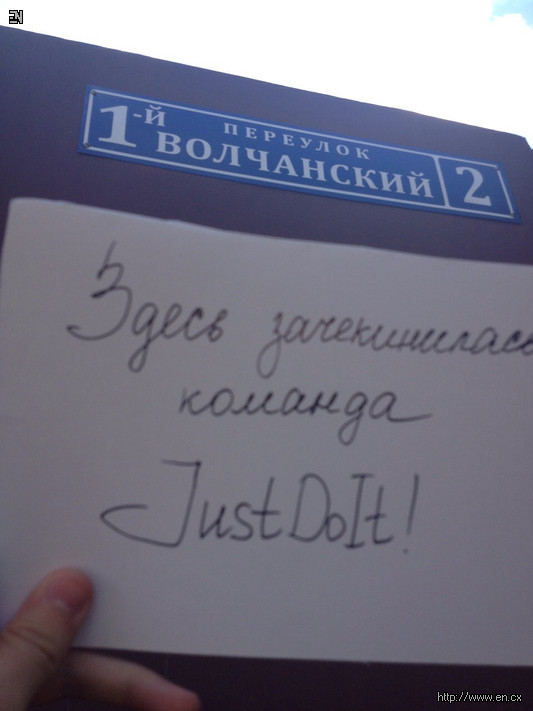 EN
1-й ПЕРЕУЛОК
ВОЛЧАНСКИЙ 2
Здесь зачекинилась
команда
JustDoIt!
http://www.en.cx